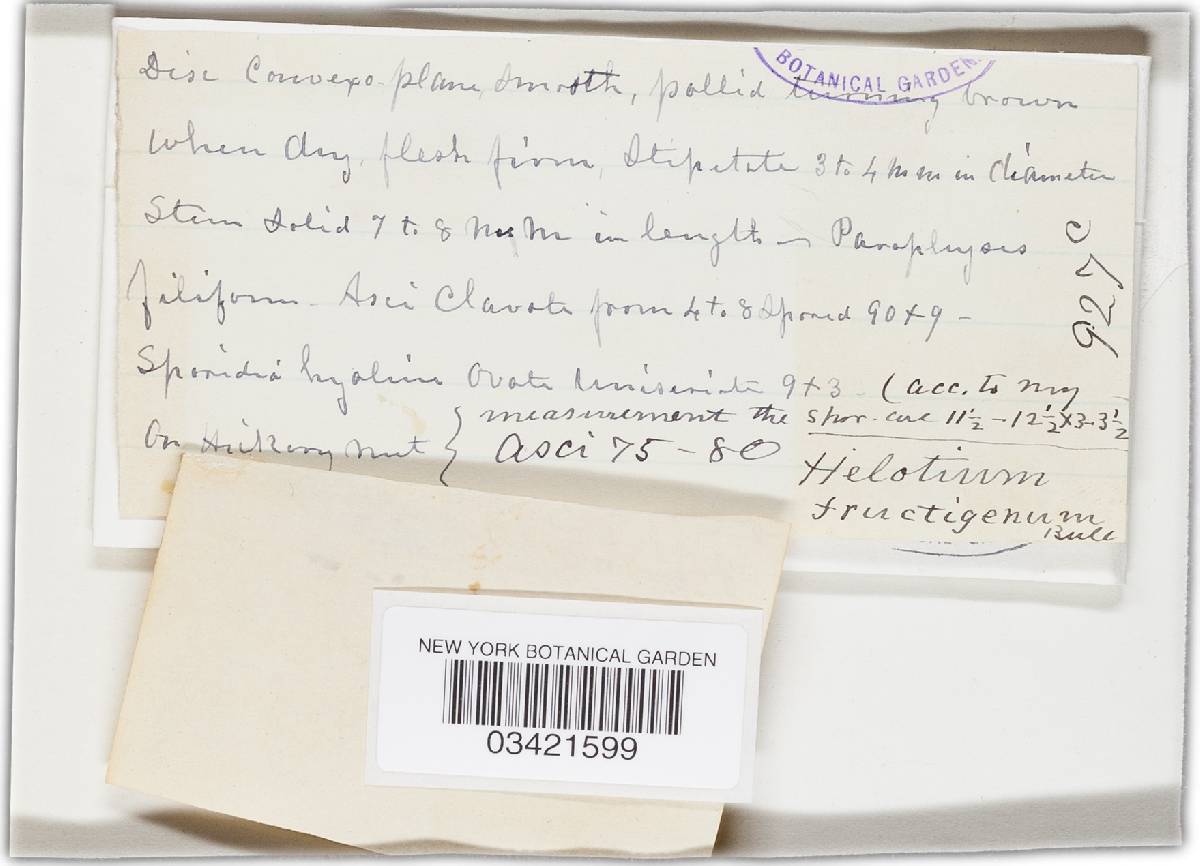 BOTANICAL GARDEN
Disc Convexo-plane, Smooth, pallid turning brown
when dry, flesh firm, Stipetate 3 to 4 mm in diameter
Stem Solid 7 to 8 mm in length - Paraphyses
filiform - Asci Clavate from 4 to 8 Spored 90x9 -
Sporidia hyaline Ovate Uniseriate 9x3. (acc. to my
measurement the spor. are 11½-12½x3-3½
On Hickory nut } asci 75-80
Helotium
fructigenum
Bull
927 c
NEW YORK BOTANICAL GARDEN
03421599